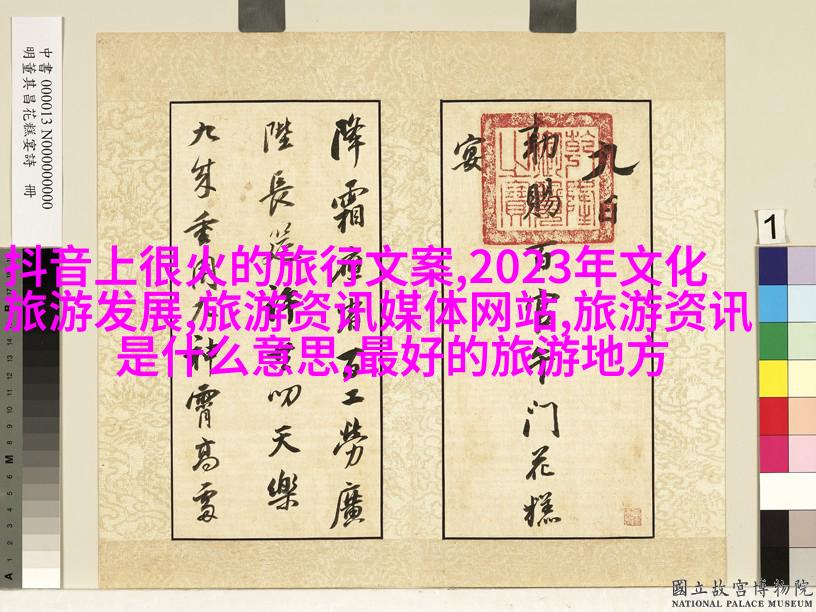 中書 000013 N000000000
明董其昌花糕宴詩 冊
九日
勅賜百官午門花糕
宴
降霜 者百工勞廣
陛長 叨天樂
九成重 神霄高
抖音上很火的旅行文案,2023年文化
旅游发展,旅游资讯媒体网站,旅游资讯
是什么意思,最好的旅游地方
1
國立故宮博物院
NATIONAL PALACE MUSEUM